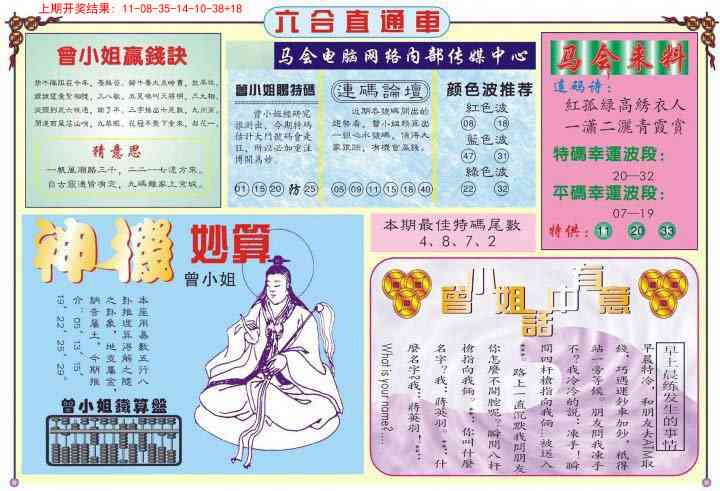 上期开奖结果：11-08-35-14-10-38+18
六合直通車
马会电脑网络内部传媒中心
曾小姐贏錢訣
猜意思
一帆風順路三千，二二一七遠方來。
自古靈透皆有定，九碼難家上京城。
曾小姐賜特碼
曾小姐經研究
推測出，今期特碼
估計大門號碼會走
狂，所以必加重注
博開為妙。
01 15 20 防 25
連碼論壇
近期各號碼開出的
05 09 11 15 18 40
颜色波推荐
紅色波
08 18
藍色波
47 31
綠色波
22 32
马会来料
送码诗：
紅孤綠高綉衣人
一瀟二灑青霞賞
特碼幸運波段：
20—32
平碼幸運波段：
07—19
特供： 11 20 33
本期最佳特碼尾數
4、8、7、2
神機妙算
曾小姐
本座用易數五行八
卦推運算得解之隨
之卦象，地支屬金，
納音屬土。今期推
介：05、13、15、
19、22、23、29。
曾小姐鐵算盤
曾小姐話中有意
早上晨练发生的事情
早晨特冷，和朋友去ATM取
錢，巧遇運鈔車加鈔，祇得
站一旁等候。朋友問我凍手
不？我冷冷的説：凍手！瞬
間四杆槍指向我倆…被送入
……路上一直沉默我問朋友
你怎麼不開腔呢？瞬間八杆
槍指向我倆。…你叫什麼
名字？我：蔣英羽。…什
麼名字？我：蔣英羽！…
What is your name?……